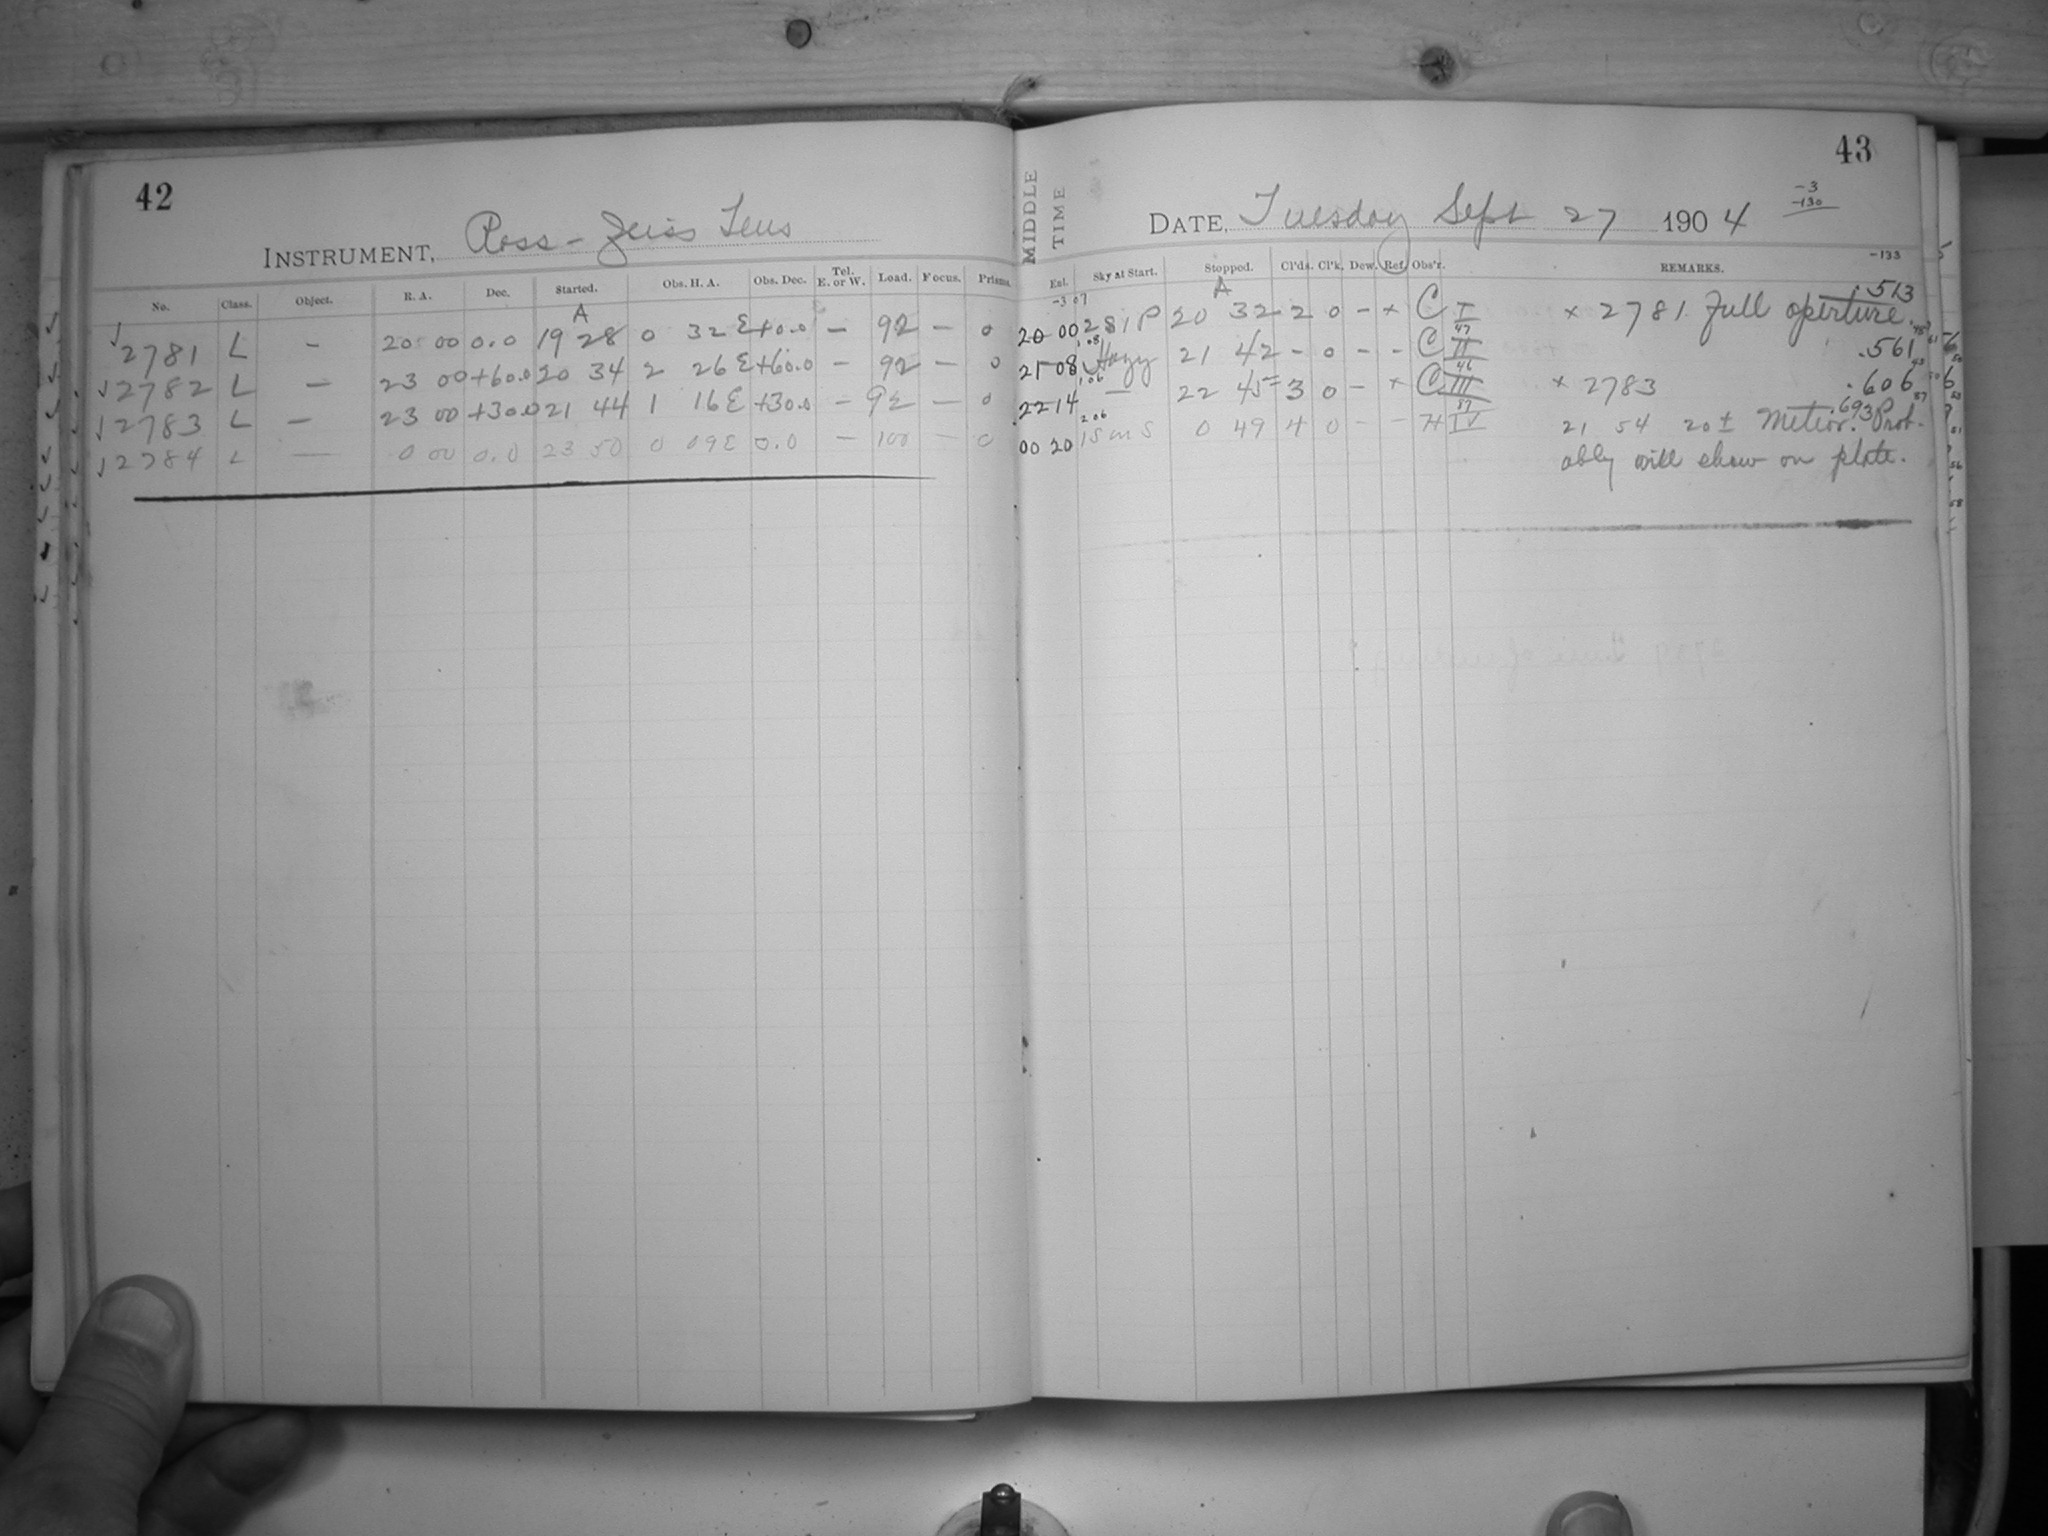 42
INSTRUMENT, Ross-Zeiss Lens
No. Class. Object. R. A. Dec. Started. Obs. H. A. Obs. Dec. Tel. E. or W. Load. Focus. Prisms.
A
2781 L - 20 00 0.0 19 28 0 32 E +0.0 - 92 - 0
2782 L - 23 00 +60.0 20 34 2 26 E +60.0 - 92 - 0
2783 L - 23 00 +30.0 21 44 1 16 E +30.0 - 92 - 0
2784 L - 0 00 0.0 23 50 0 09 E 0.0 - 100 - 0
43
MIDDLE TIME
DATE, Tuesday Sept 27 1904
-3
-130
-133
Ext. Sky at Start. Stopped. Cl'ds. Cl'k. Dew. Ref. Obs'r. REMARKS.
-3 07 A
20 00 281P 20 32 2 0 - × C I × 2781 Full aperture. .513
21 08 Hazy 21 42 - 0 - - C II .561
22 14 - 22 45 3 0 - × C III × 2783 .606
00 20 0 49 4 0 - - H IV 21 54 20± Meteor. Prob- .693
ably will show on plate.